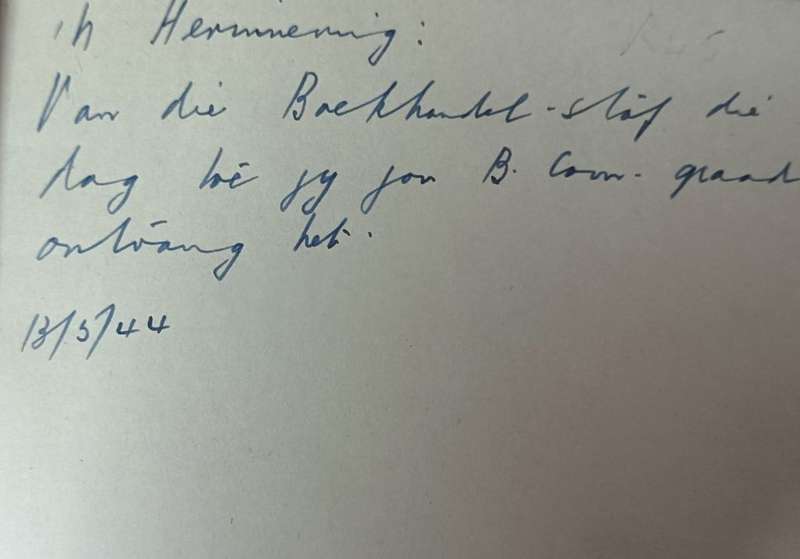 'n Herinnering:
Van die Boekhandel-staf die
dag toe jy jou B. Com. graad
ontvang het.
13/3/44